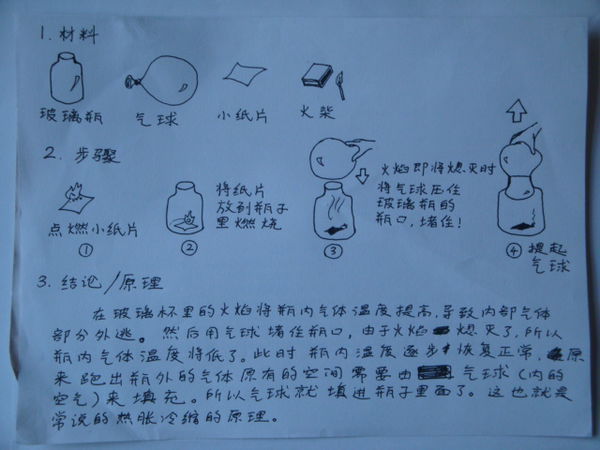 1. 材料
玻璃瓶
气球
小纸片
火柴
2. 步骤
点燃小纸片
①
将纸片
放到瓶子
里燃烧
②
火焰即将熄灭时
将气球压住
玻璃瓶的
瓶口，堵住！
③
④ 提起
气球
3. 结论/原理
在玻璃杯里的火焰将瓶内气体温度提高，导致内部气体
部分外逃。然后用气球堵住瓶口，由于火焰熄灭了，所以
瓶内气体温度将低了。此时瓶内温度逐步恢复正常，原
来跑出瓶外的气体原有的空间需要由气球（内的
空气）来填充。所以气球就填进瓶子里面了。这也就是
常说的热胀冷缩的原理。